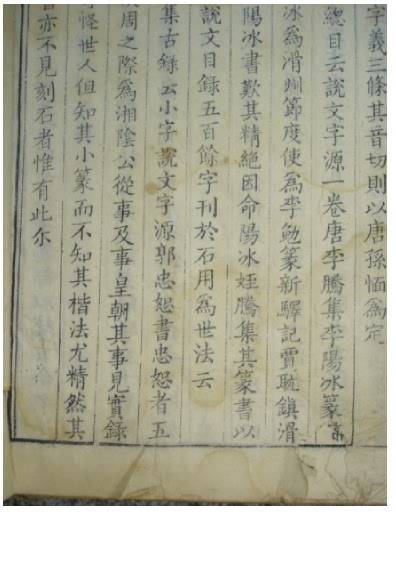 字義三條其音切則以唐孫愐爲定
總目云說文字源一卷唐李騰集李陽冰篆
冰爲滑州節度使爲李勉篆新驛記賈耽鎮滑
陽冰書歎其精絕因命陽冰姪騰集其篆書以
說文目錄五百餘字刊於石用爲世法云
集古錄云小字說文字源郭忠恕書忠恕者五
周之際爲湘陰公從事及事皇朝其事見實錄
怪世人但知其小篆而不知其楷法尤精然其
亦不見刻石者惟有此尔